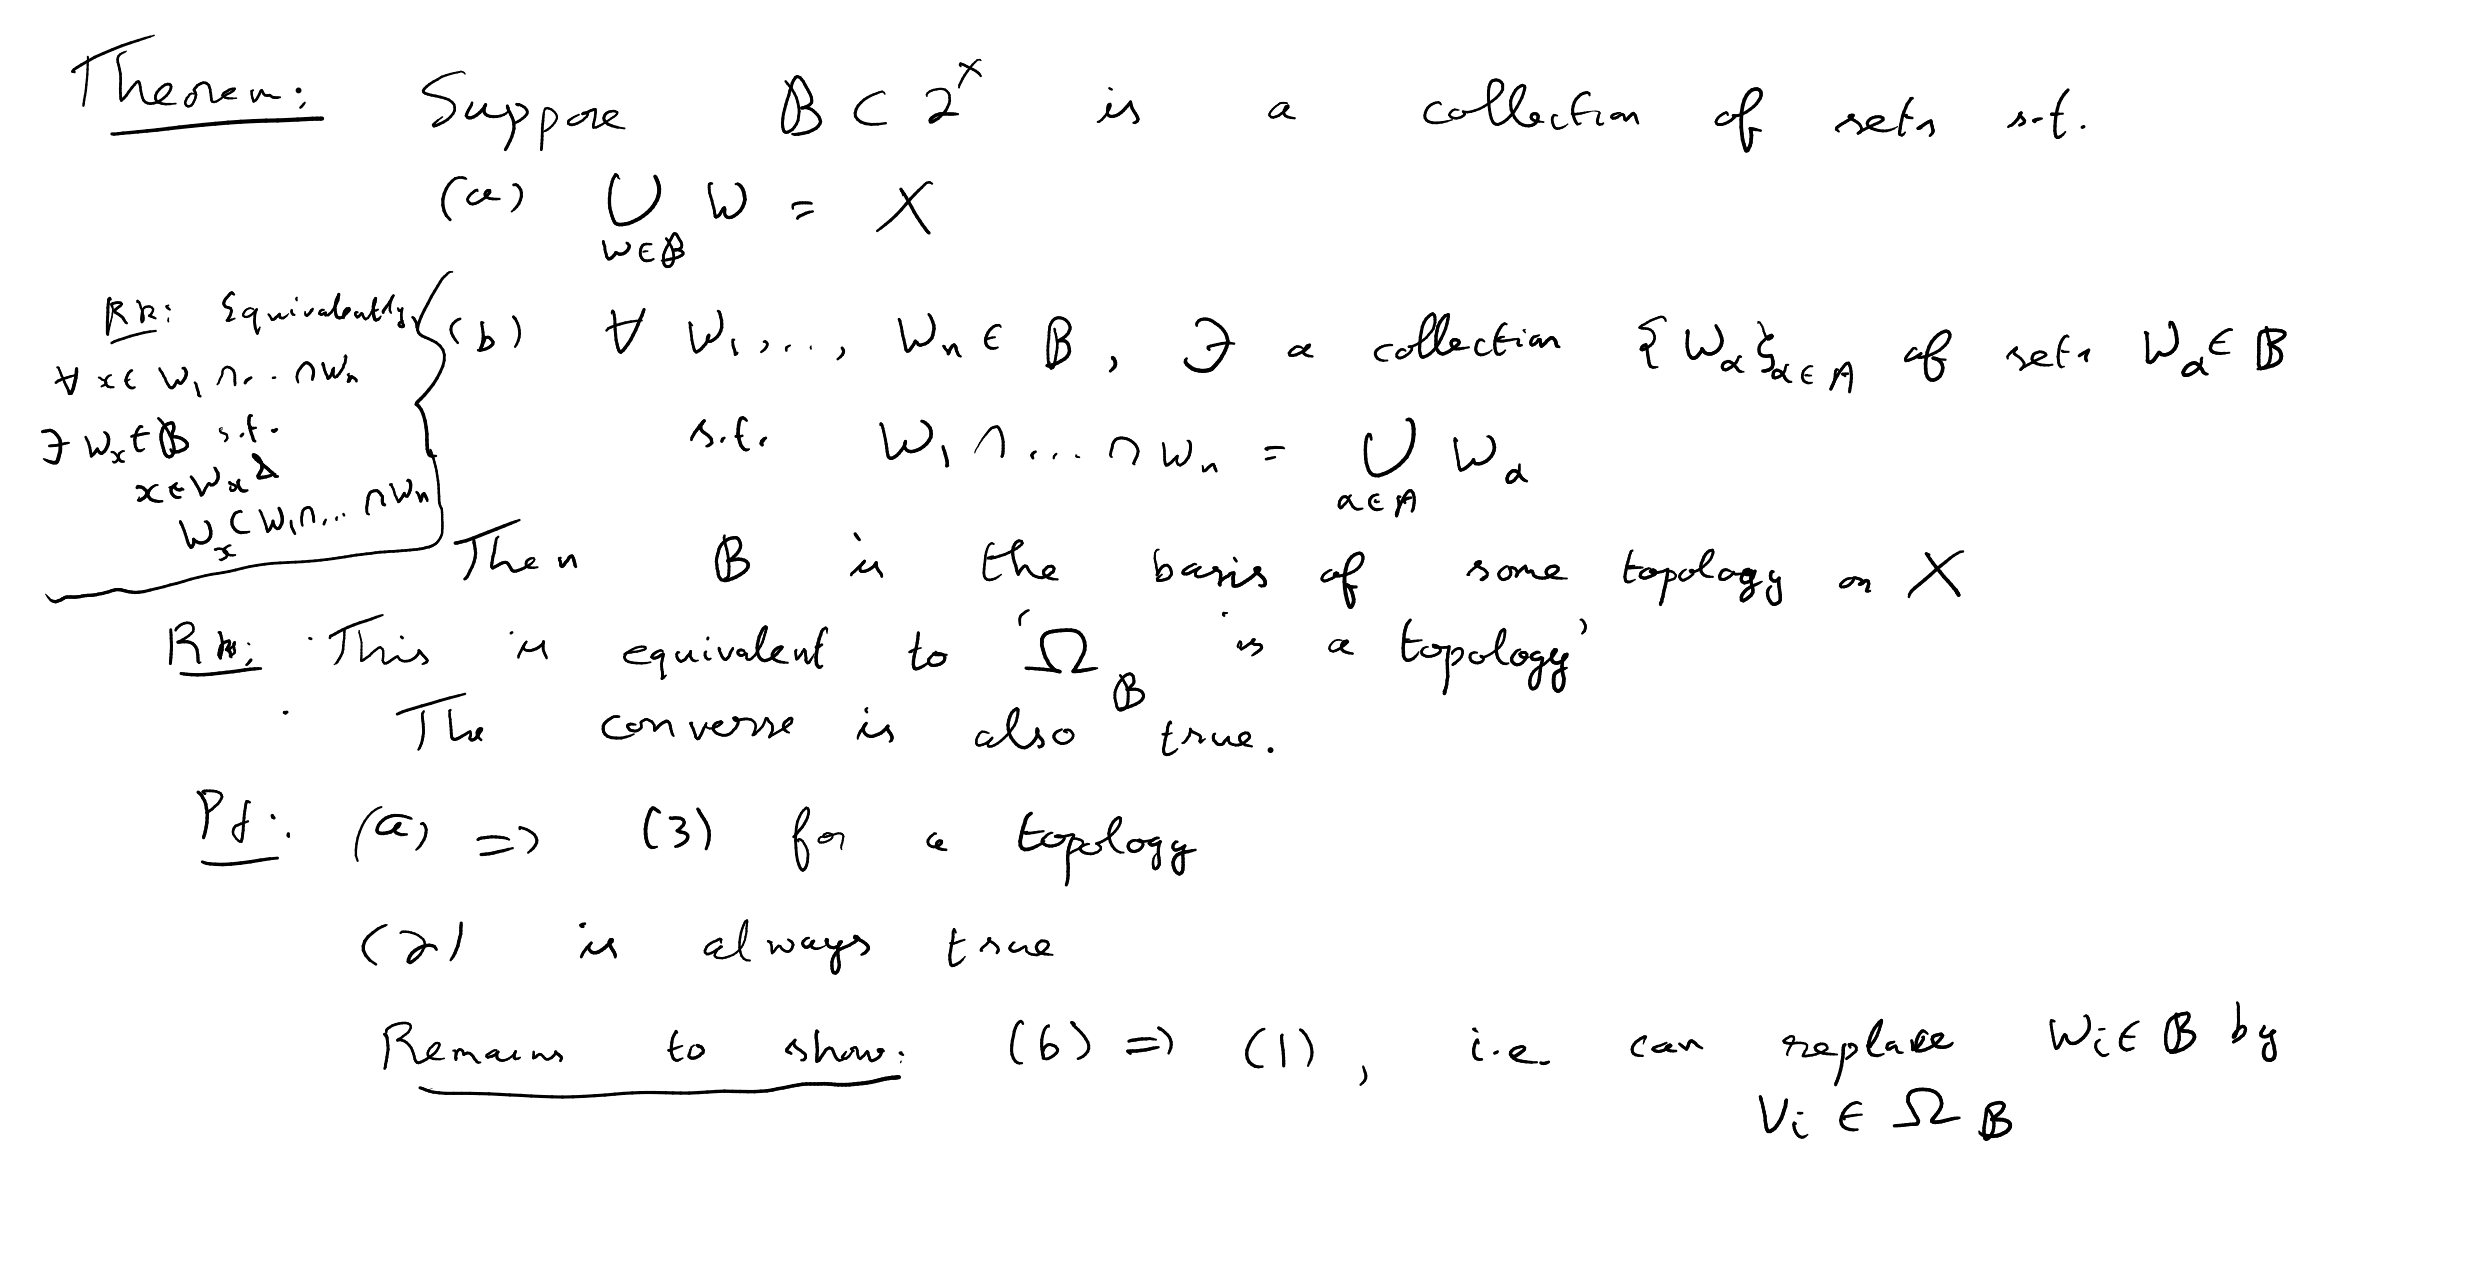 Theorem: Suppose 𝔹 ⊂ 2^X is a collection of sets s.t.
(a) ⋃_{W∈𝔹} W = X
Rk: Equivalently,
∀ x ∈ W₁ ∩ .. ∩ Wₙ
∃ Wₓ ∈ 𝔹 s.t.
x ∈ Wₓ &
Wₓ ⊂ W₁ ∩ ... ∩ Wₙ
(b) ∀ W₁, ..., Wₙ ∈ 𝔹, ∃ a collection {W_α}_{α∈A} of sets W_α ∈ 𝔹
s.t. W₁ ∩ ... ∩ Wₙ = ⋃_{α∈A} W_α
Then 𝔹 is the basis of some topology on X
Rk: · This is equivalent to 'Ω_𝔹 is a topology'
· The converse is also true.
Pf: (a) => (3) for a topology
(2) is always true
Remains to show: (b) => (1), i.e. can replace Wᵢ ∈ 𝔹 by
Vᵢ ∈ Ω_𝔹